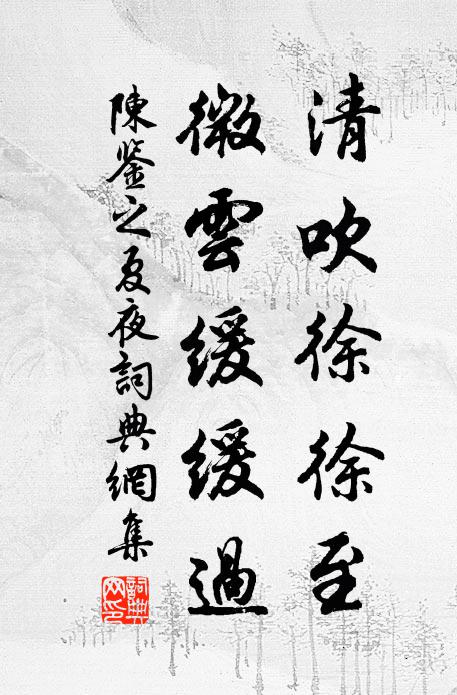 清吹徐徐至
微雲緩緩過
陳鑒之夏夜詞典網集
詞典網印